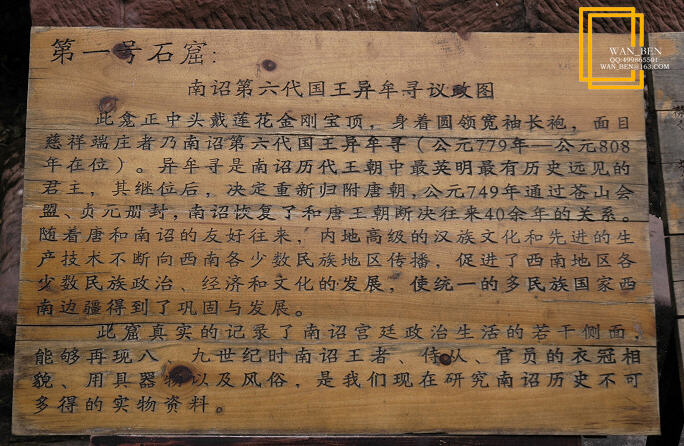 第一号石窟:
南诏第六代国王异牟寻议政图
此龛正中头戴莲花金刚宝顶，身着圆领宽袖长袍，面目
慈祥端庄者乃南诏第六代国王异牟寻（公元779年—公元808
年在位）。异牟寻是南诏历代王朝中最英明最有历史远见的
君主，其继位后，决定重新归附唐朝，公元749年通过苍山会
盟、贞元册封，南诏恢复了和唐王朝断决往来40余年的关系。
随着唐和南诏的友好往来，内地高级的汉族文化和先进的生
产技术不断向西南各少数民族地区传播，促进了西南地区各
少数民族政治、经济和文化的发展，使统一的多民族国家西
南边疆得到了巩固与发展。
此窟真实的记录了南诏宫廷政治生活的若干侧面，
能够再现八、九世纪时南诏王者、侍从、官员的衣冠相
貌、用具器物以及风俗，是我们现在研究南诏历史不可
多得的实物资料。
WAN_BEN
QQ:499865501
WAN_BEN@163.COM